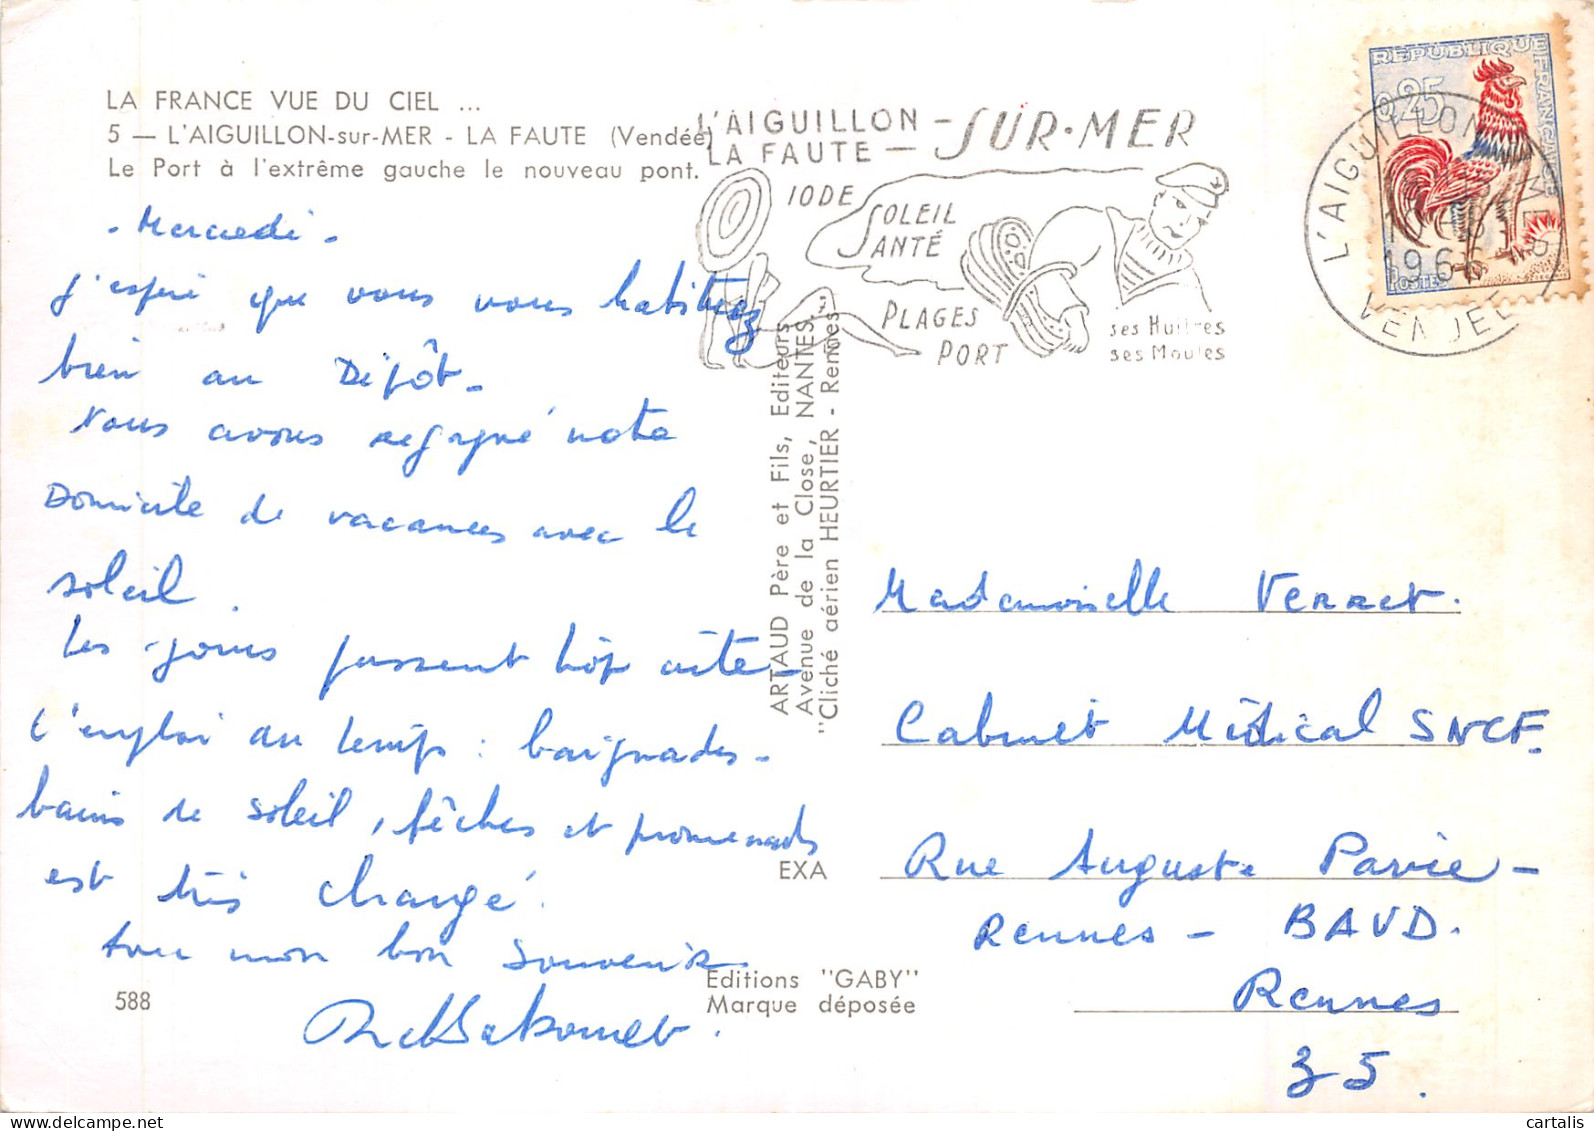 LA FRANCE VUE DU CIEL ...
5 — L'AIGUILLON-sur-MER - LA FAUTE (Vendée)
Le Port à l'extrême gauche le nouveau pont.
- Mercredi -
J'espère que vous vous habituez
bien au Dépôt -
Nous avons regagné notre
Domicile de vacances avec le
soleil.
Les jours passent trop vite -
L'emploi du temps : baignades -
bains de soleil, pêches et promenades
est très chargé.
Tout mon bon souvenir
588
L'AIGUILLON - SUR-MER
LA FAUTE —
IODE
SOLEIL
SANTÉ
PLAGES
PORT
ses Huitres
ses Moules
REPUBLIQUE FRANCAISE
0,25
POSTES
L'AIGUILLON S MER
1966
VENDEE
ARTAUD Père et Fils, Editeurs
Avenue de la Close, NANTES
"Cliché aérien HEURTIER - Rennes"
EXA
Editions "GABY"
Marque déposée
Mademoiselle Verret.
Cabinet Médical SNCF.
Rue Auguste Pavie -
Rennes - BAUD.
Rennes
35.
cartalis